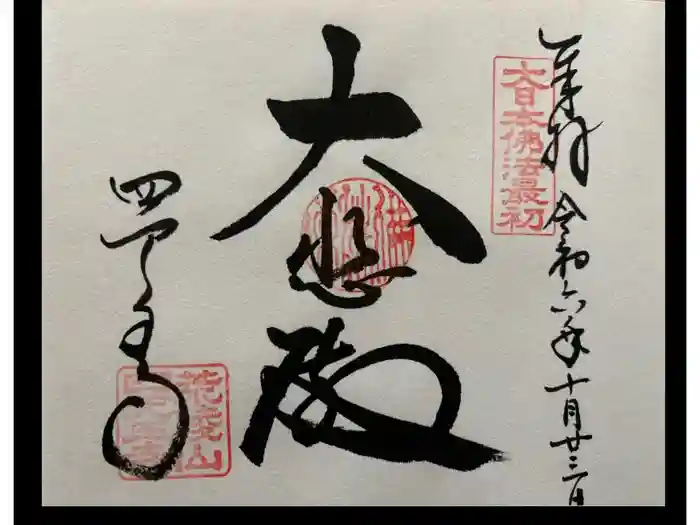 奉拝 令和六年十月廿三日
大日本佛法最初
大悲殿
四天王寺
荒陵山